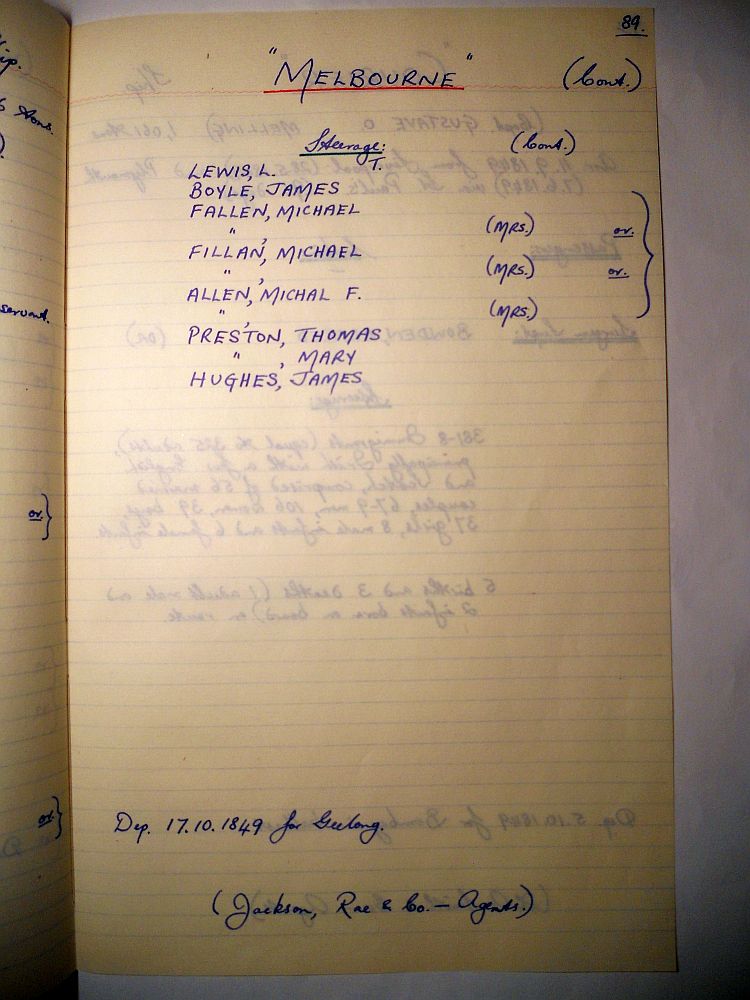 89.
"MELBOURNE" (Cont.)
Steerage: (Cont.)
LEWIS, L. T.
BOYLE, JAMES
FALLEN, MICHAEL
" , (MRS.) or.
FILLAN, MICHAEL
" , (MRS.) or.
ALLEN, MICHAL F.
" , (MRS.)
PRESTON, THOMAS
" , MARY
HUGHES, JAMES
servant.
or.
or.
Dep. 17.10.1849 for Geelong.
(Jackson, Rae & Co. — Agents.)